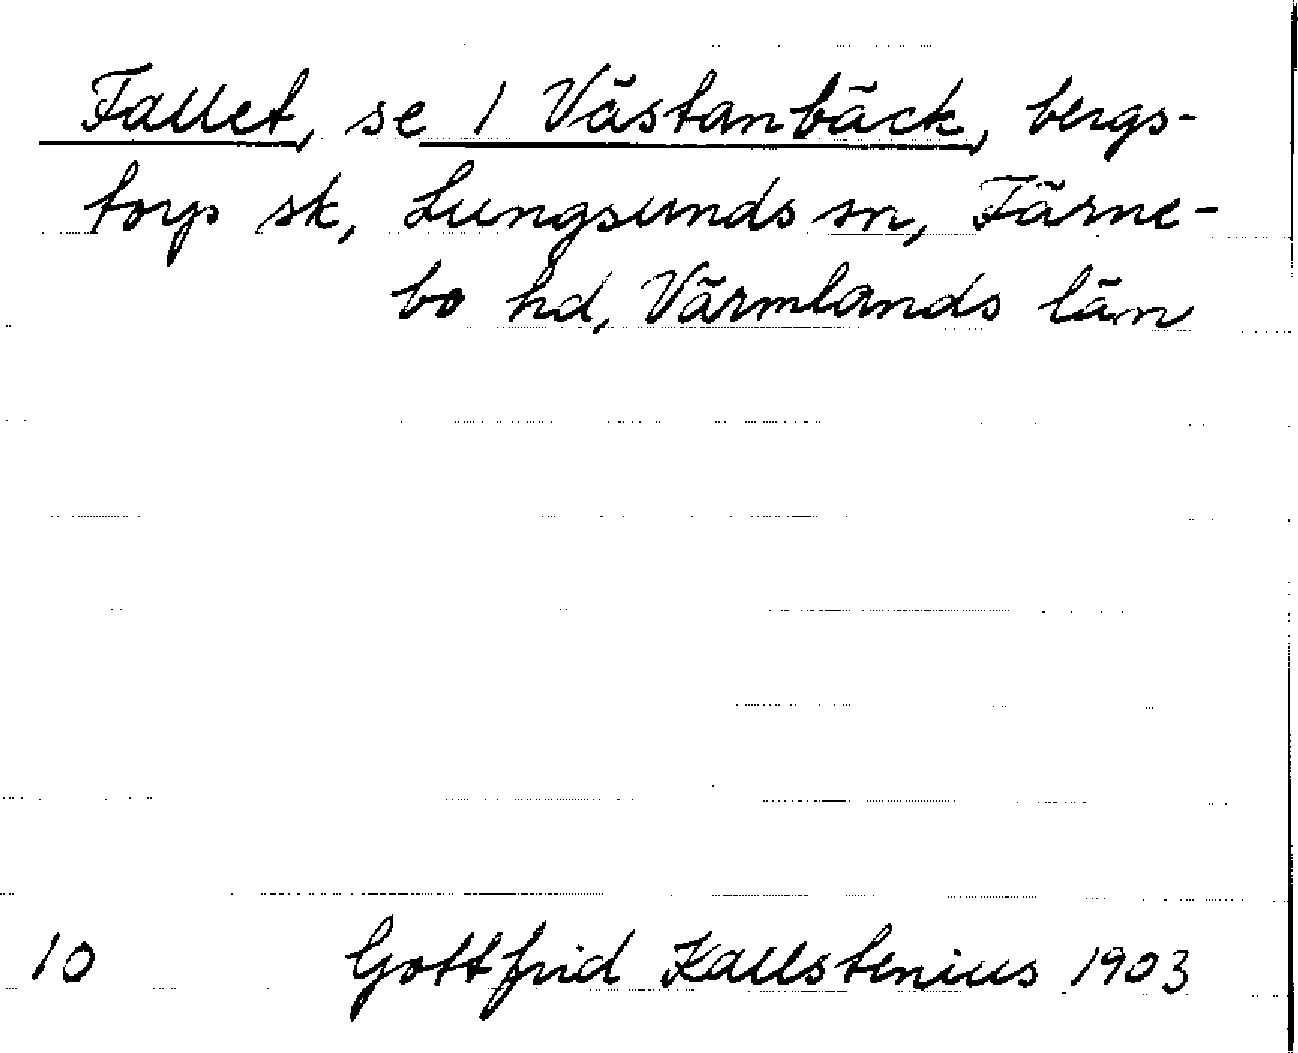 Fallet, se 1 Västanbäck, bergs-
torp sk, Lungsunds sn, Färne-
bo hd, Värmlands län
10 Gottfrid Kallstenius 1903